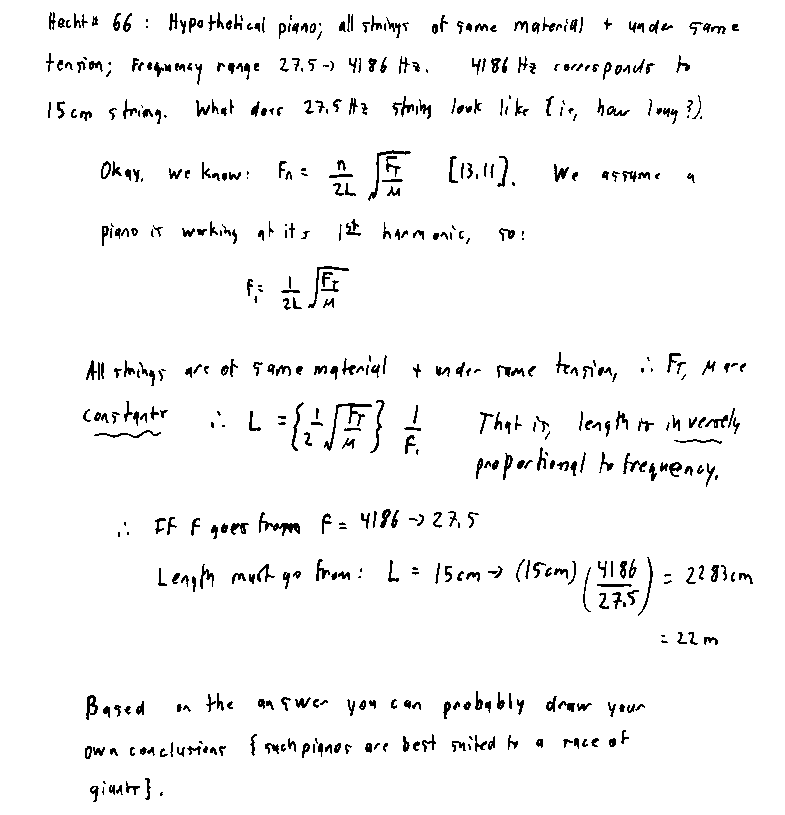 Hecht # 66 : Hypothetical piano; all strings of same material + under same
tension; Frequency range 27.5 → 4186 Hz. 4186 Hz corresponds to
15 cm string. What does 27.5 Hz string look like {ie, how long?}.
Okay, we know: Fn = n/2L √(FT/μ) [13.11]. We assume a
piano is working at its 1st harmonic, so:
f1 = 1/2L √(FT/μ)
All strings are of same material + under same tension, ∴ FT, μ are
constants ∴ L = {1/2 √(FT/μ)} 1/f1 That is, length is inversely
proportional to frequency.
∴ If f goes from f = 4186 → 27.5
Length must go from: L = 15cm → (15cm) (4186/27.5) = 2283cm
= 22 m
Based on the answer you can probably draw your
own conclusions {such pianos are best suited to a race of
giants}.